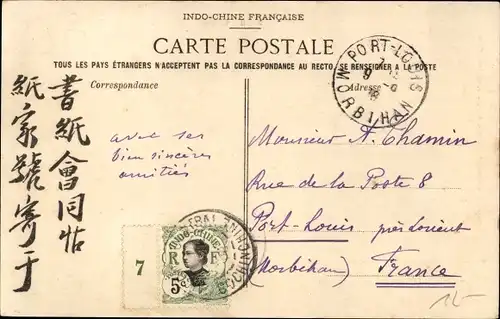 INDO-CHINE FRANÇAISE
CARTE POSTALE
TOUS LES PAYS ÉTRANGERS N'ACCEPTENT PAS LA CORRESPONDANCE AU RECTO. SE RENSEIGNER A LA POSTE
Correspondance
Adresse
PORT-LOUIS
MORBIHAN
書紙會同帖
紙家號寄于
avec ses
bien sincères
amitiés
Monsieur A. Chamin
Rue de la Poste 8
Port-Louis près Lorient
(Morbihan) France
7
INDO-CHINE
R F
5
COCHINCHINE